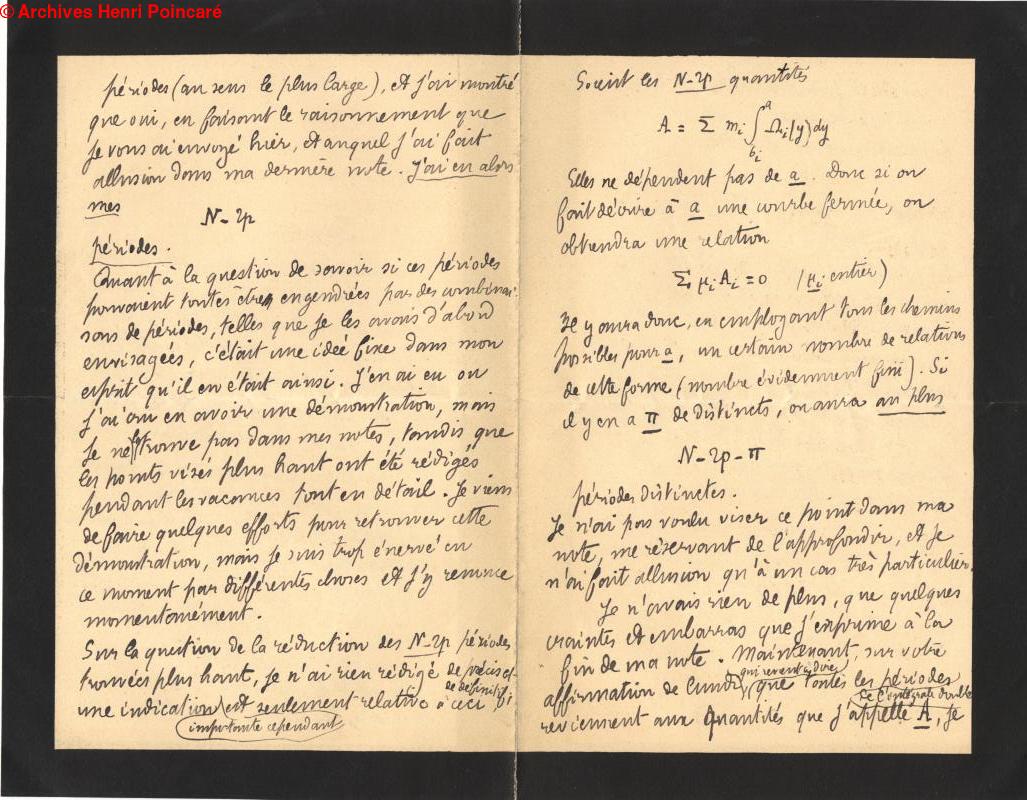 © Archives Henri Poincaré
périodes (au sens le plus large), et j'ai montré
que oui, en faisant le raisonnement que
je vous ai envoyé hier, et auquel j'ai fait
allusion dans ma dernière note. J'ai eu alors
mes
N-2p
périodes.
Quant à la question de savoir si ces périodes
pouvaient toutes être engendrées par des combinai-
sons de périodes, telles que je les avais d'abord
envisagées, c'était une idée fixe dans mon
esprit qu'il en était ainsi. J'en ai eu ou
j'ai cru en avoir une démonstration, mais
je ne la trouve pas dans mes notes, tandis que
les points visés plus haut ont été rédigés
pendant les vacances tout en détail. Je viens
de faire quelques efforts pour retrouver cette
démonstration, mais je suis trop énervé en
ce moment par différentes choses et j'y renonce
momentanément.
Sur la question de la réduction des N-2p périodes
trouvées plus haut, je n'ai rien rédigé de précis et
de définitif
une indication est seulement relative à ceci :
(importante cependant)
Soient les N-2p quantités
A = Σ m_i ∫_{b_i}^{a} Ω_i(y) dy
Elles ne dépendent pas de a. Donc si on
fait décrire à a une courbe fermée, on
obtiendra une relation
Σ μ_i A_i = 0 (μ_i entier)
Il y aura donc, en employant tous les chemins
possibles pour a, un certain nombre de relations
de cette forme (nombre évidemment fini). Si
il y en a π de distincts, on aura au plus
N-2p-π
périodes distinctes.
Je n'ai pas voulu viser ce point dans ma
note, me réservant de l'approfondir, et je
n'ai fait allusion qu'à un cas très particulier.
Je n'avais rien de plus, que quelques
craintes et embarras que j'exprime à la
fin de ma note. Maintenant, sur votre
qui revient à dire
affirmation de lundi, que toutes les périodes
de l'intégrale double
reviennent aux quantités que j'appelle A, je